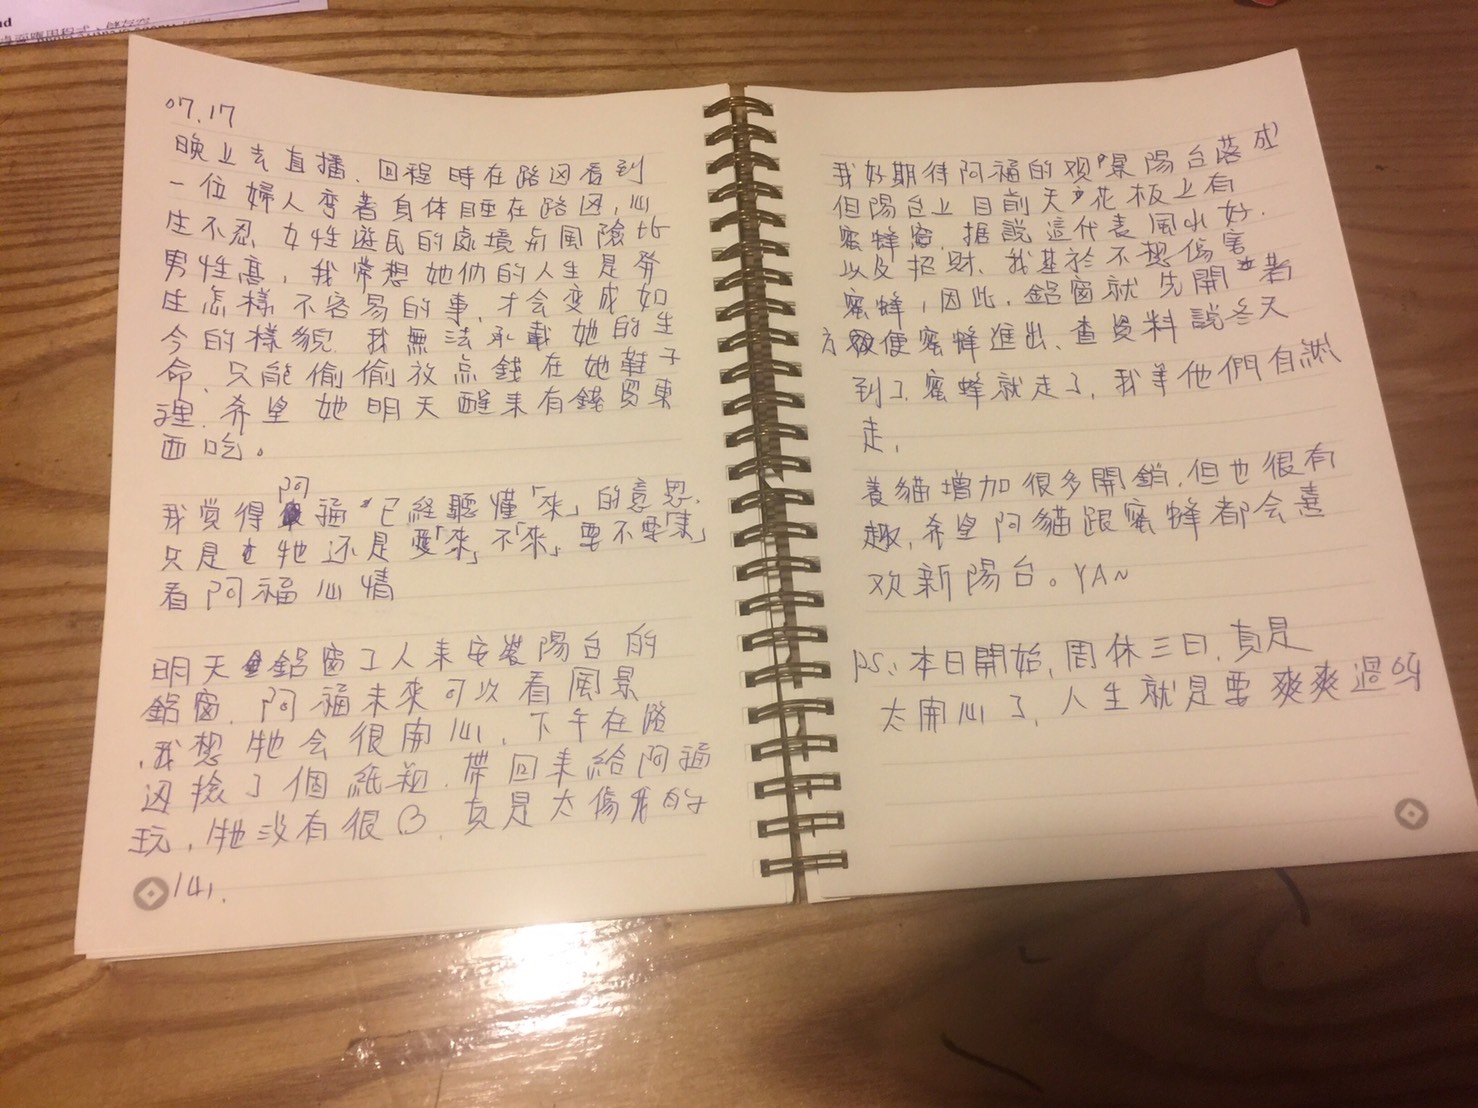 07.17
晚上去直播、回程時在路边看到
一位婦人弯著身体睡在路边,心
生不忍 女性遊民的處境与風險比
男性高,我常想她们的人生是发
生怎樣不容易的事,才会变成如
今的樣貌 我無法承載她的生
命、只能偷偷放点錢在她鞋子
裡、希望她明天醒来有錢買東
西吃。
我覚得阿福已經聽懂「來」的意思、
只是牠还是愛「來」不「來」、要不要「来」
看阿福心情
明天鋁窗工人来安裝陽台的
鋁窗、阿福未來可以看風景
,我想牠会很開心、下午在路
边撿了個紙箱、帶回来給阿福
玩,牠没有很口、真是太傷我的
心,
我好期待阿福的观景陽台落成
但陽台上目前天花板上有
蜜蜂窩、据說這代表風水好、
以及招财、我基於不想伤害
蜜蜂,因此,鋁窗就先開著
方便蜜蜂進出、查資料說冬天
到了、蜜蜂就走了、我等他們自然
走,
養貓增加很多開銷、但也很有
趣、希望阿貓跟蜜蜂都会喜
欢新陽台。YA~
PS:本日開始、周休三日、真是
太開心了、人生就是要爽爽過呀